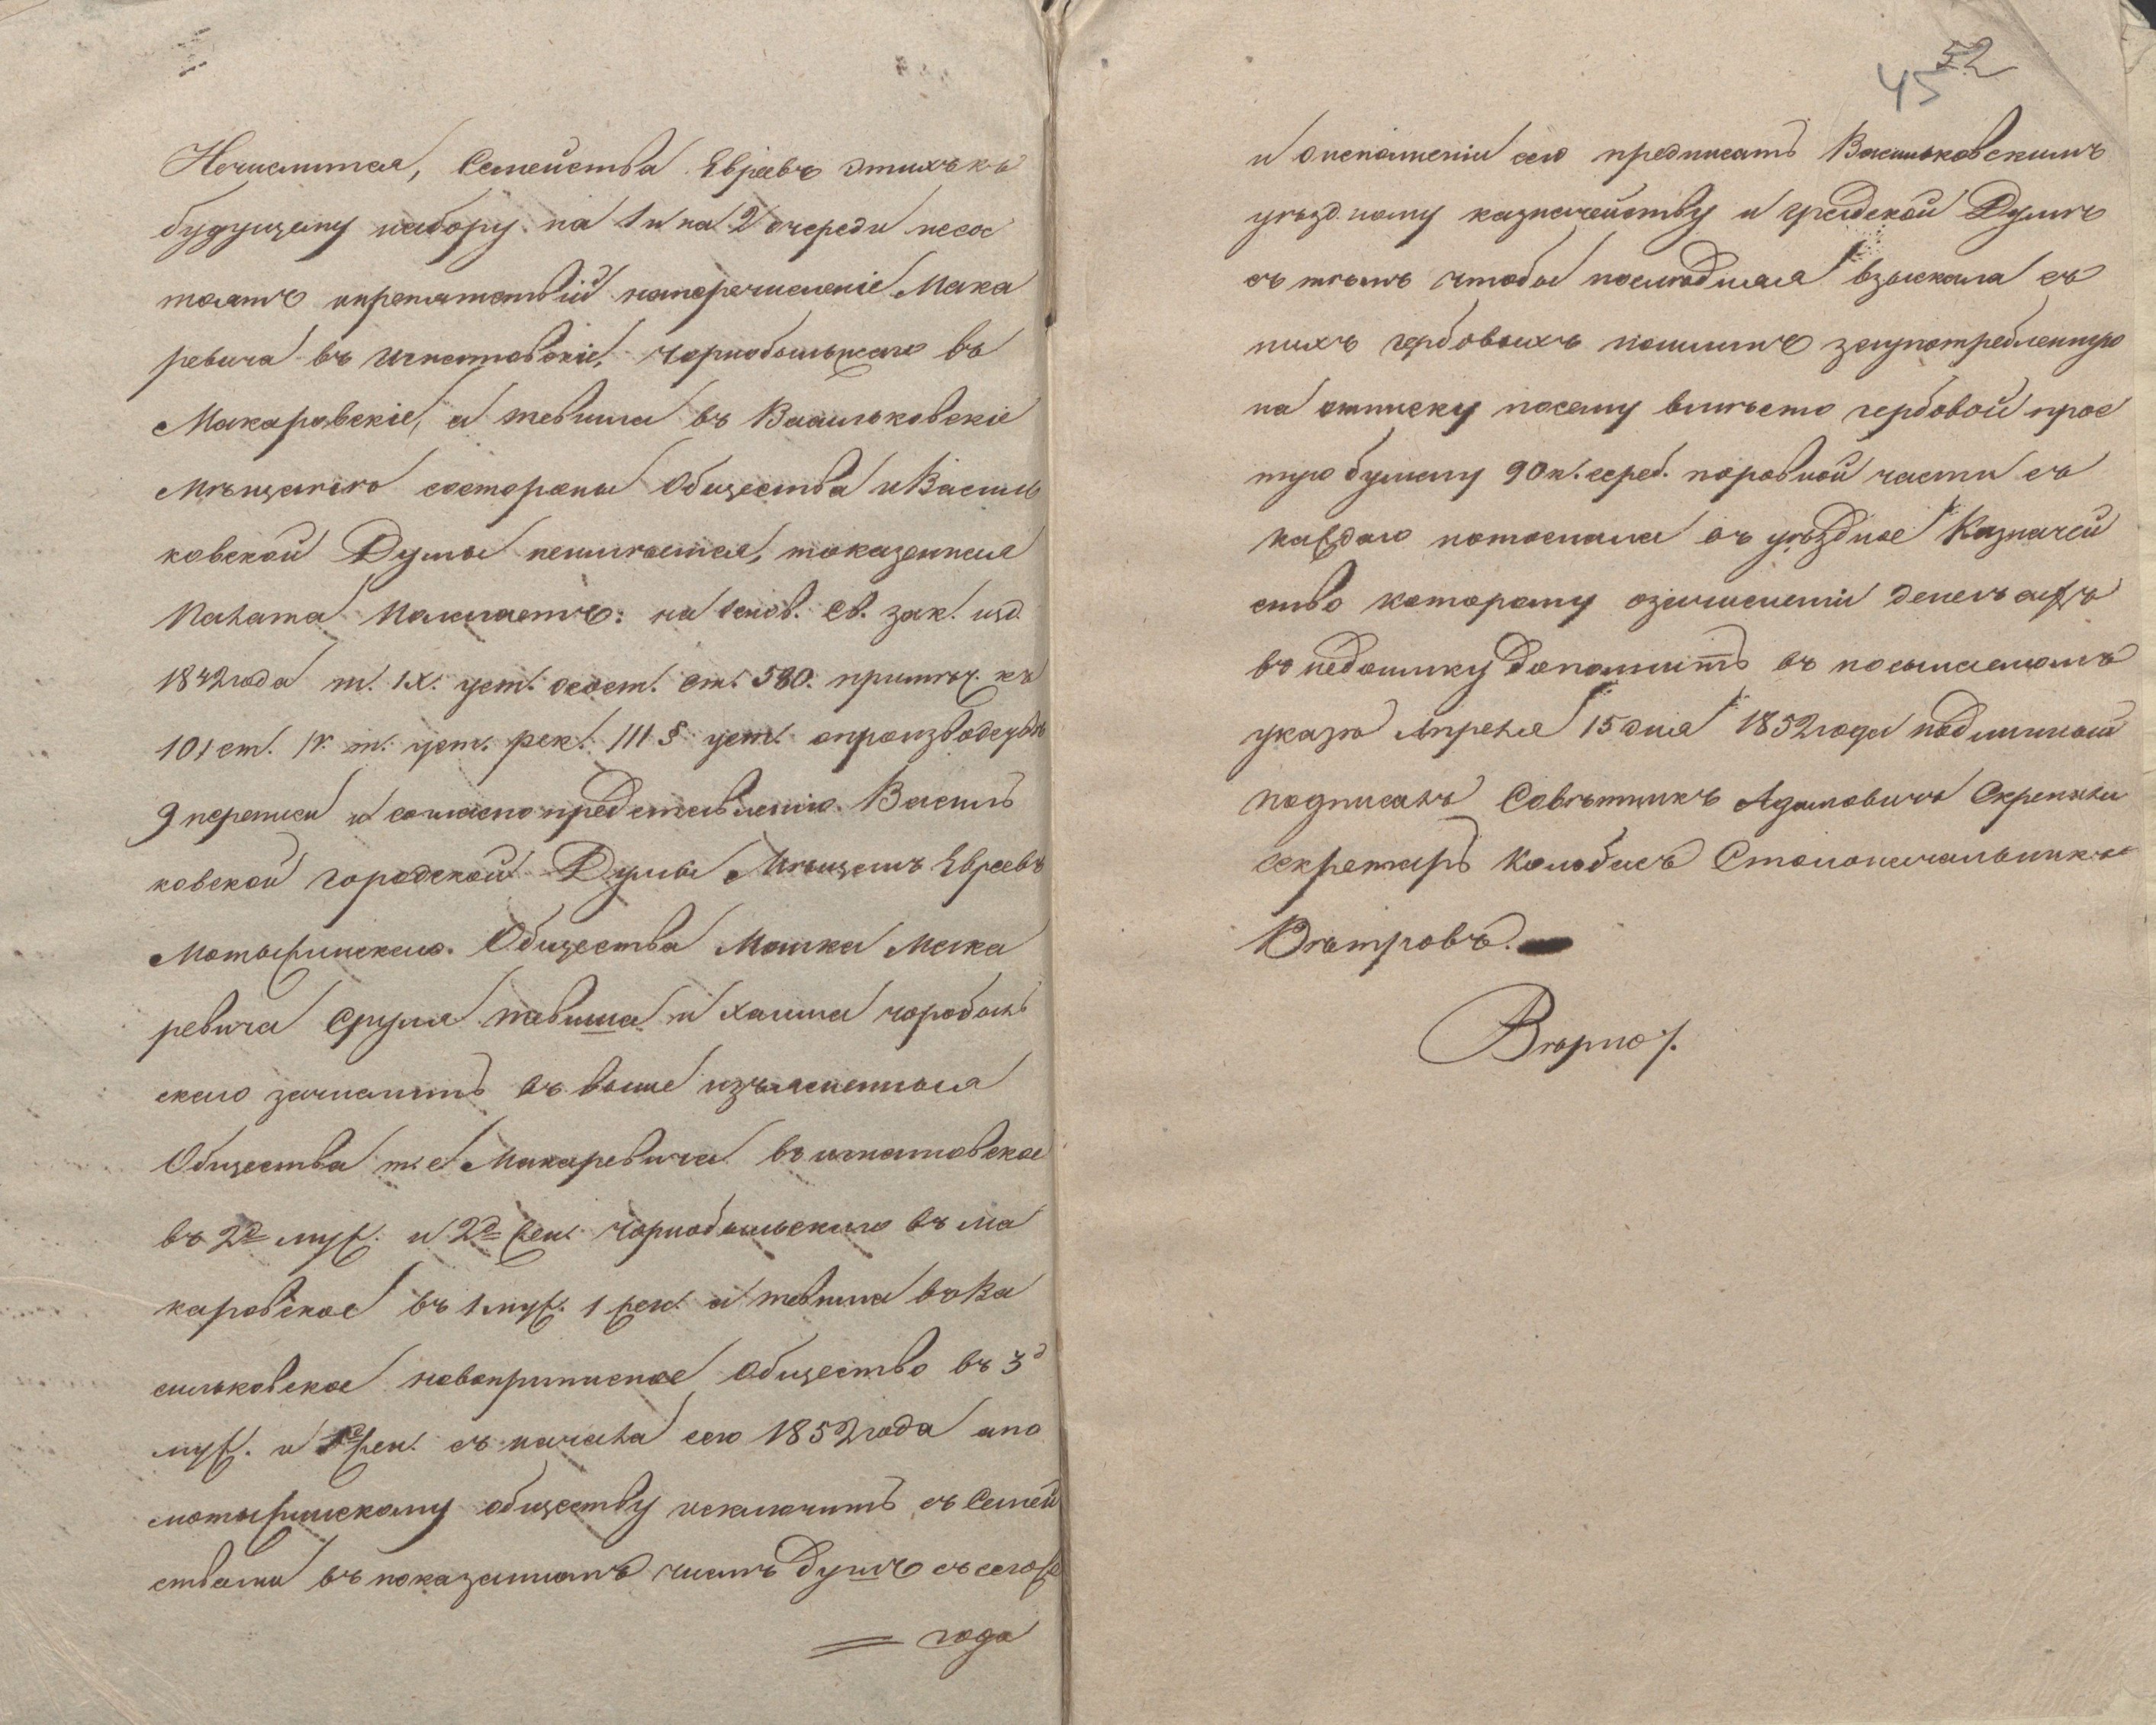 Нечислится, Семейства Евреевъ этихъ къ
будущему набору на 1 и на 2 очереди несос
тоятъ ипрепятствій наперечисленіе Мака
ревича въ Игнатовскіе, чернобыльскаго въ
Макаровскіе, а тевиша въ Васильковскіе
Мѣщанство состороны Общества и Василь
ковской Думы неимѣется, то казенная
Палата Полагаетъ: на основ. Св. зак. изд.
1842 года т. IX. уст. осост. ст. 580. примѣч. къ
101 ст. IV. т. уст. рек. III § уст. опроизводствѣ
9 переписи и согласно представленію Василь
ковской городской Думы Мѣщанъ Евреевъ
Мотыжинскаго Общества Мошка Мака
ревича Сруля тавиша и хаима чоробыль
скаго зачислить въ выше изъясненныя
Общества т. е. Макаревича въ игнатовское
въ 2й муж. и 2й жен. чорнобыльскаго въ ма
каровское въ 1 муж. 1 жен. а тевиша въ Ва
сильковское новоприписное Общество въ 3й
муж. и жен. съ начала сего 1852 года апо
мотыжинскому обществу исключить съ Семей
ствами въ показанномъ числѣ душъ съ сегоже
года
52
45
и оисполненіи сего предписать Васильковскимъ
уѣздному казначейству и градской Думѣ
съ тѣмъ чтобы послѣдняя взыскала съ
нихъ гербовыхъ пошлинъ заупотребленную
на отписку посему вмѣсто гербовой прос
тую бумагу 90 к. сереб. поровной части съ
каждаго ипотослала въ уѣздное Казначей
ство которому озачисленіи денегъ
въ недоимку дополнить въ посылаемомъ
указѣ Апрѣля 15 дня 1852 года подлинный
подписалъ Совѣтникъ Адамовичъ Скрепили
секретарь Столоначальникъ
Вѣтровъ.
Вѣрно/.